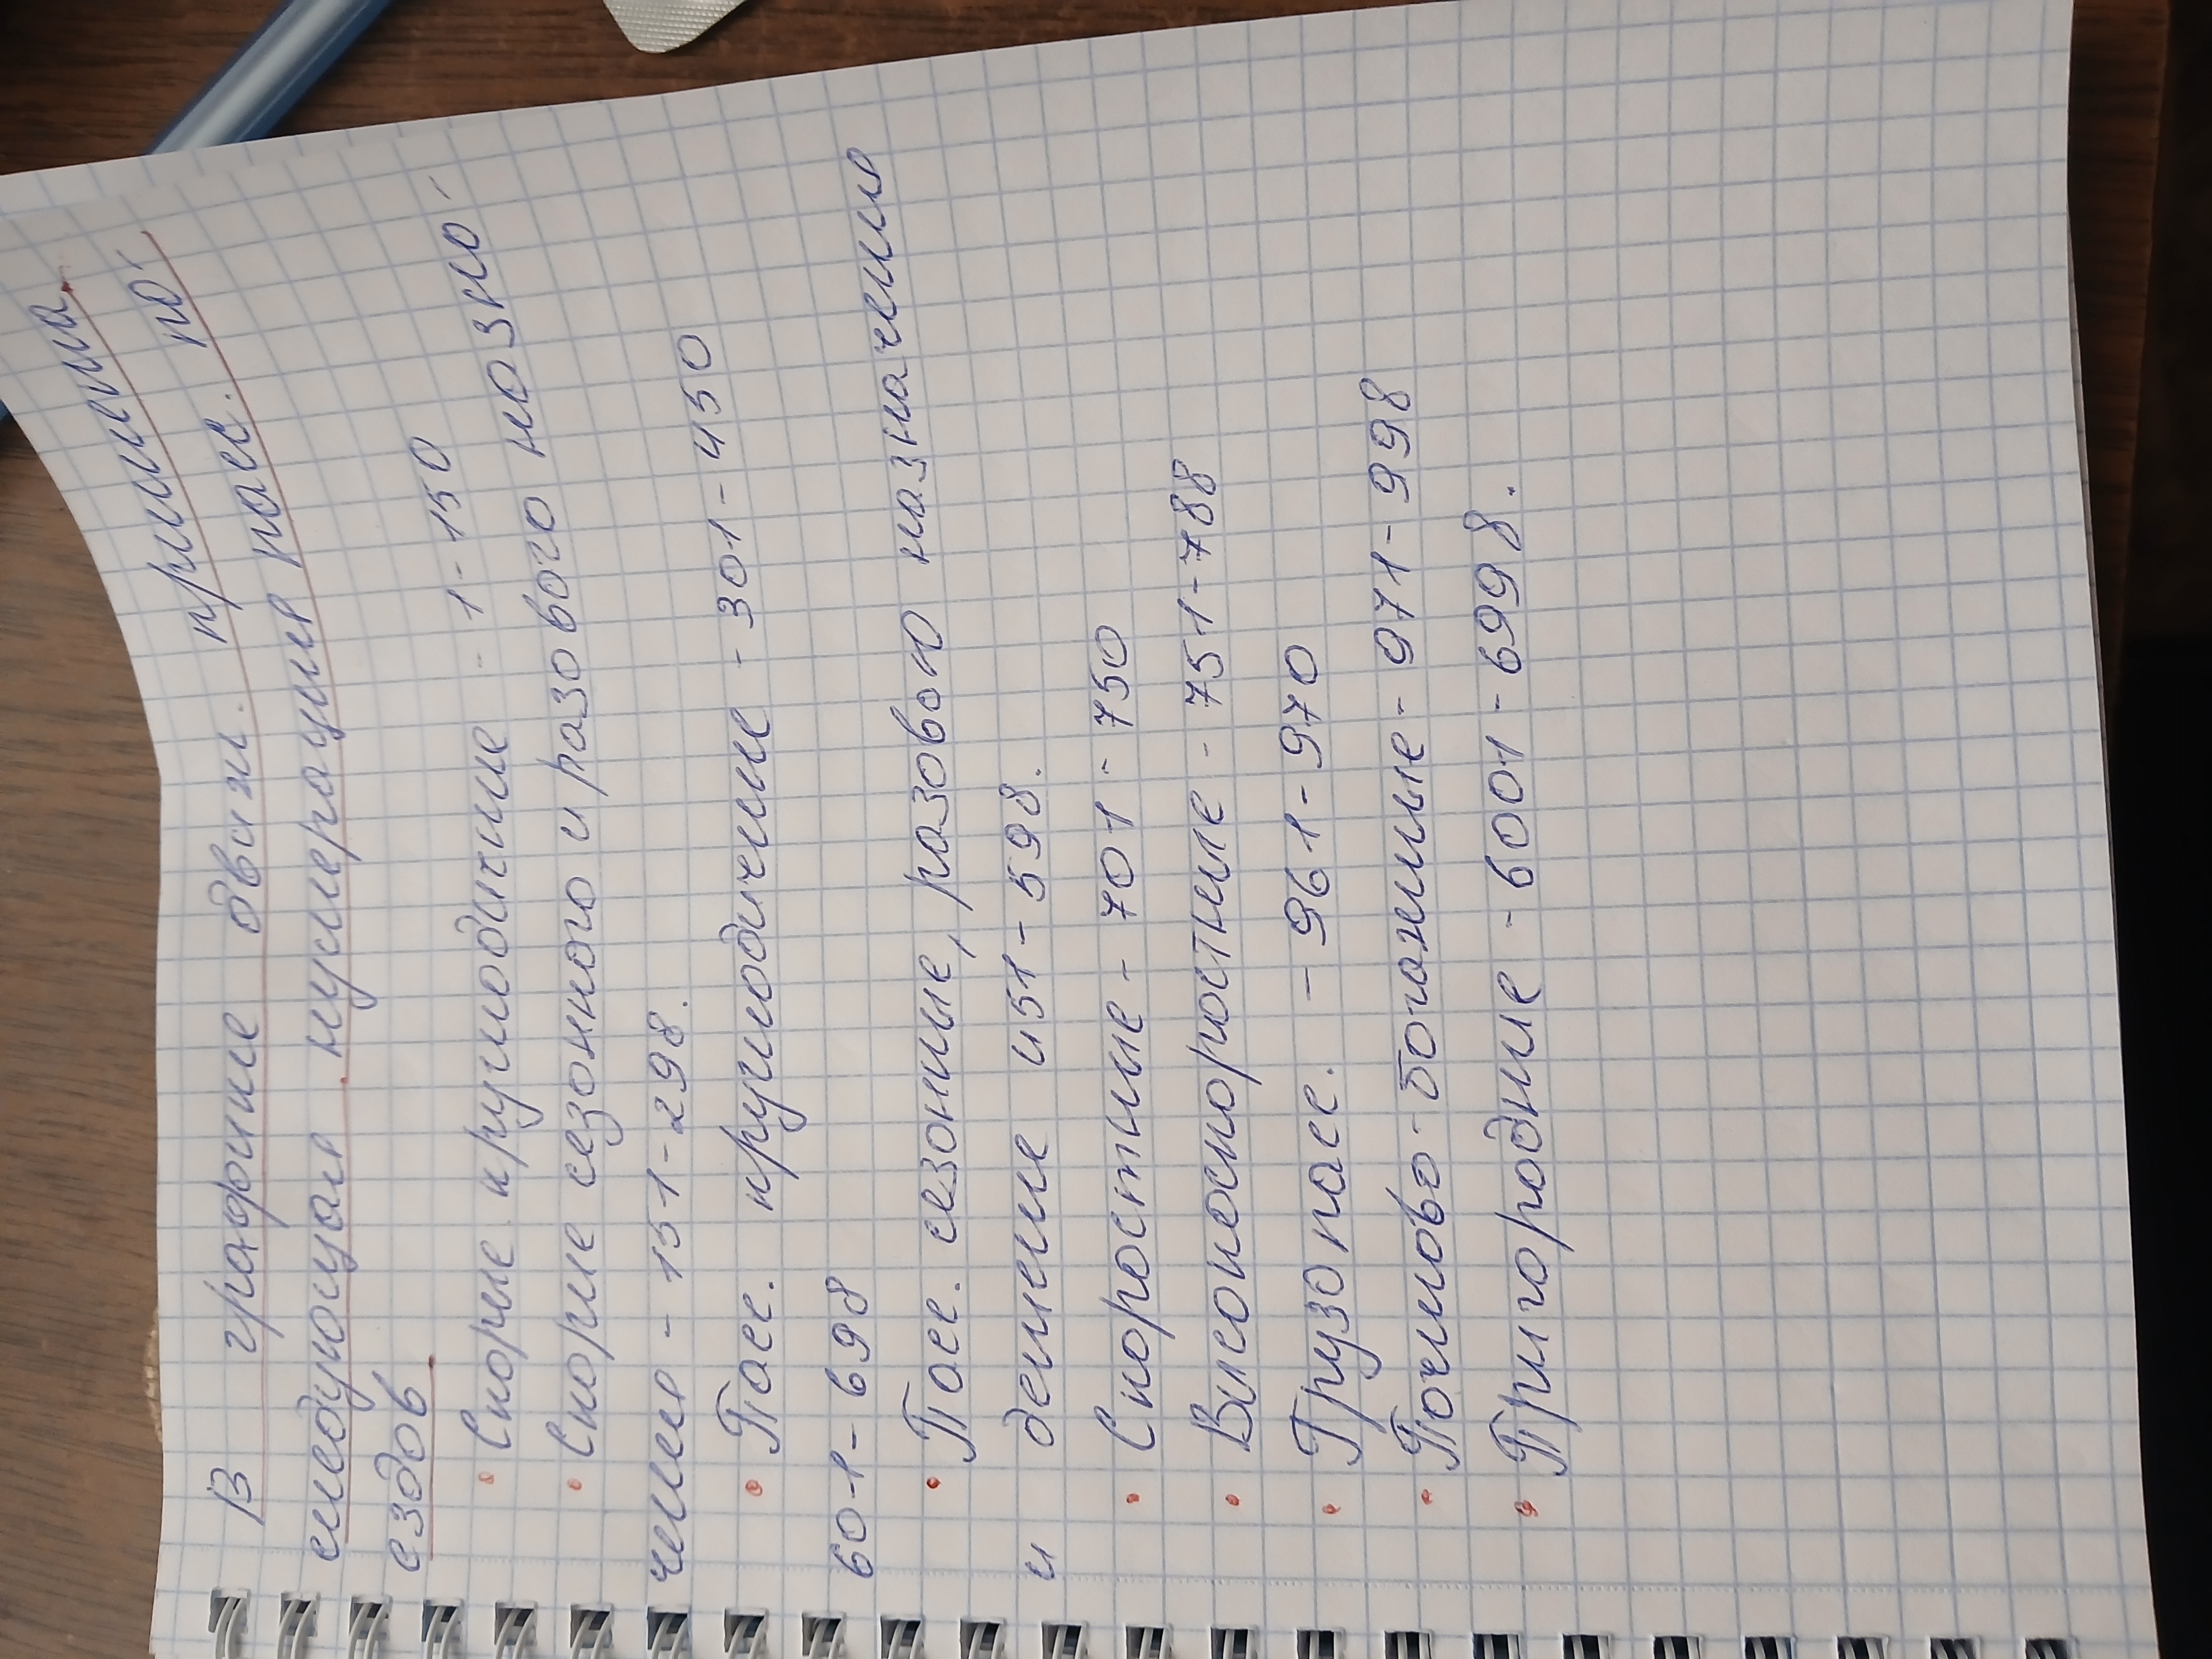 В графике движ. применена
следующая нумерация пасс. по-
ездов
• Скорые круглодичные - 1-150
• Скорые сезонного и разового назна-
чения - 151-298.
• Пасс. круглодичные - 301-450
601-698
• Пасс. сезонные, разового назначению
и дачные 451-598.
• Скоростные - 701-750
• Высокоскоростные - 751-788
• Грузопасс. - 961-970
• Почтово-багажные - 971-998
• Пригородные - 6001-6998.